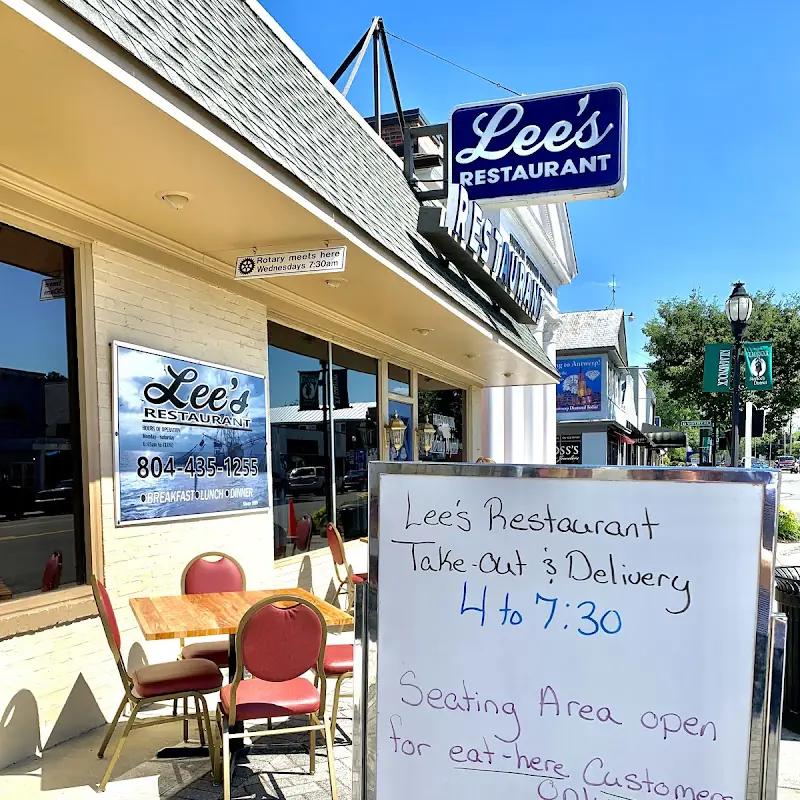 Lee's
RESTAURANT
RESTAURANT
Rotary meets here
Wednesdays 7:30am
Lee's
RESTAURANT
HOURS OF OPERATION
Monday - Saturday
804-435-1255
BREAKFAST LUNCH DINNER
Lee's Restaurant
Take-Out & Delivery
4 to 7:30
Seating Area open
for eat-here Customers
Only